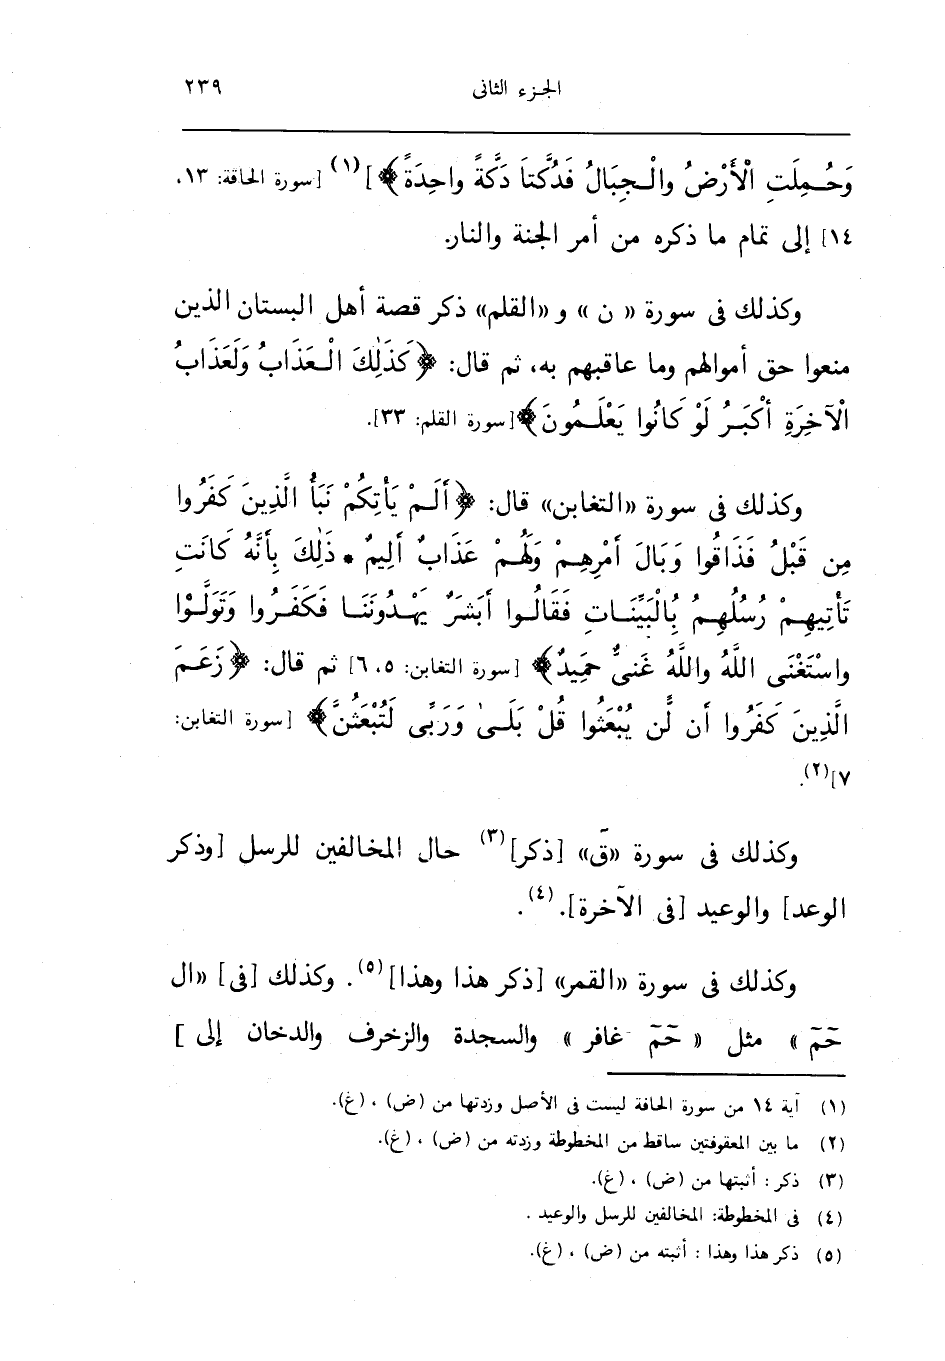 الجزء الثانى ٢٣٩
وَحُمِلَتِ الْأَرْضُ والْجِبَالُ فَدُكَّتاَ دَكَّةً واحِدَةً﴾](١) [سورة الحاقة: ١٣،
١٤] إلى تمام ما ذكره من أمر الجنة والنار.
وكذلك فى سورة « ن » و «القلم» ذكر قصة أهل البستان الذين
منعوا حق أموالهم وما عاقبهم به، ثم قال: ﴿كَذَلِكَ الْعَذَابُ وَلَعَذَابُ
الْآخِرَةِ أكْبَرُ لَوْ كَانُوا يَعْلَمُونَ﴾[سورة القلم: ٣٣].
وكذلك فى سورة «التغابن» قال: ﴿أَلَمْ يَأْتِكُمْ نَبَأُ الَّذِينَ كَفَرُوا
مِن قَبْلُ فَذَاقُوا وَبَالَ أَمْرِهِمْ وَلَهُمْ عَذَابٌ أَلِيمٌ * ذَلِكَ بِأَنَّهُ كَانَت
تَأْتِيهِمْ رُسُلُهِمُ بِالْبَيِّنَاتِ فَقَالُوا أَبَشَرٌ يَهْدُونَنَا فَكَفَرُوا وَتَوَلَّوْا
واسْتَغْنَى اللَّهُ واللَّهُ غَنىٌّ حَمِيدٌ﴾ [سورة التغابن: ٥، ٦] ثم قال: ﴿زَعَمَ
الَّذِينَ كَفَرُوا أن لَّن يُبْعَثُوا قُلْ بَلَىٰ وَرَبِّى لَتُبْعَثُنَّ﴾ [سورة التغابن:
٧](٢).
وكذلك فى سورة «قَ» [ذكر](٣) حال المخالفين للرسل [وذكر
الوعد] والوعيد [فى الآخرة].(٤).
وكذلك فى سورة «القمر» [ذكر هذا وهذا](٥). وكذلك [فى] «ال
حَمَ » مثل « حَمَ غافر » والسجدة والزخرف والدخان إلى ]
(١) آية ١٤ من سورة الحاقة ليست فى الأصل وزدتها من (ض) ، (غ).
(٢) ما بين المعقوفتين ساقط من المخطوطة وزدته من (ض) ، (غ).
(٣) ذكر : أثبتها من (ض) ، (غ).
(٤) فى المخطوطة: المخالفين للرسل والوعيد .
(٥) ذكر هذا وهذا : أثبته من (ض) ، (غ).